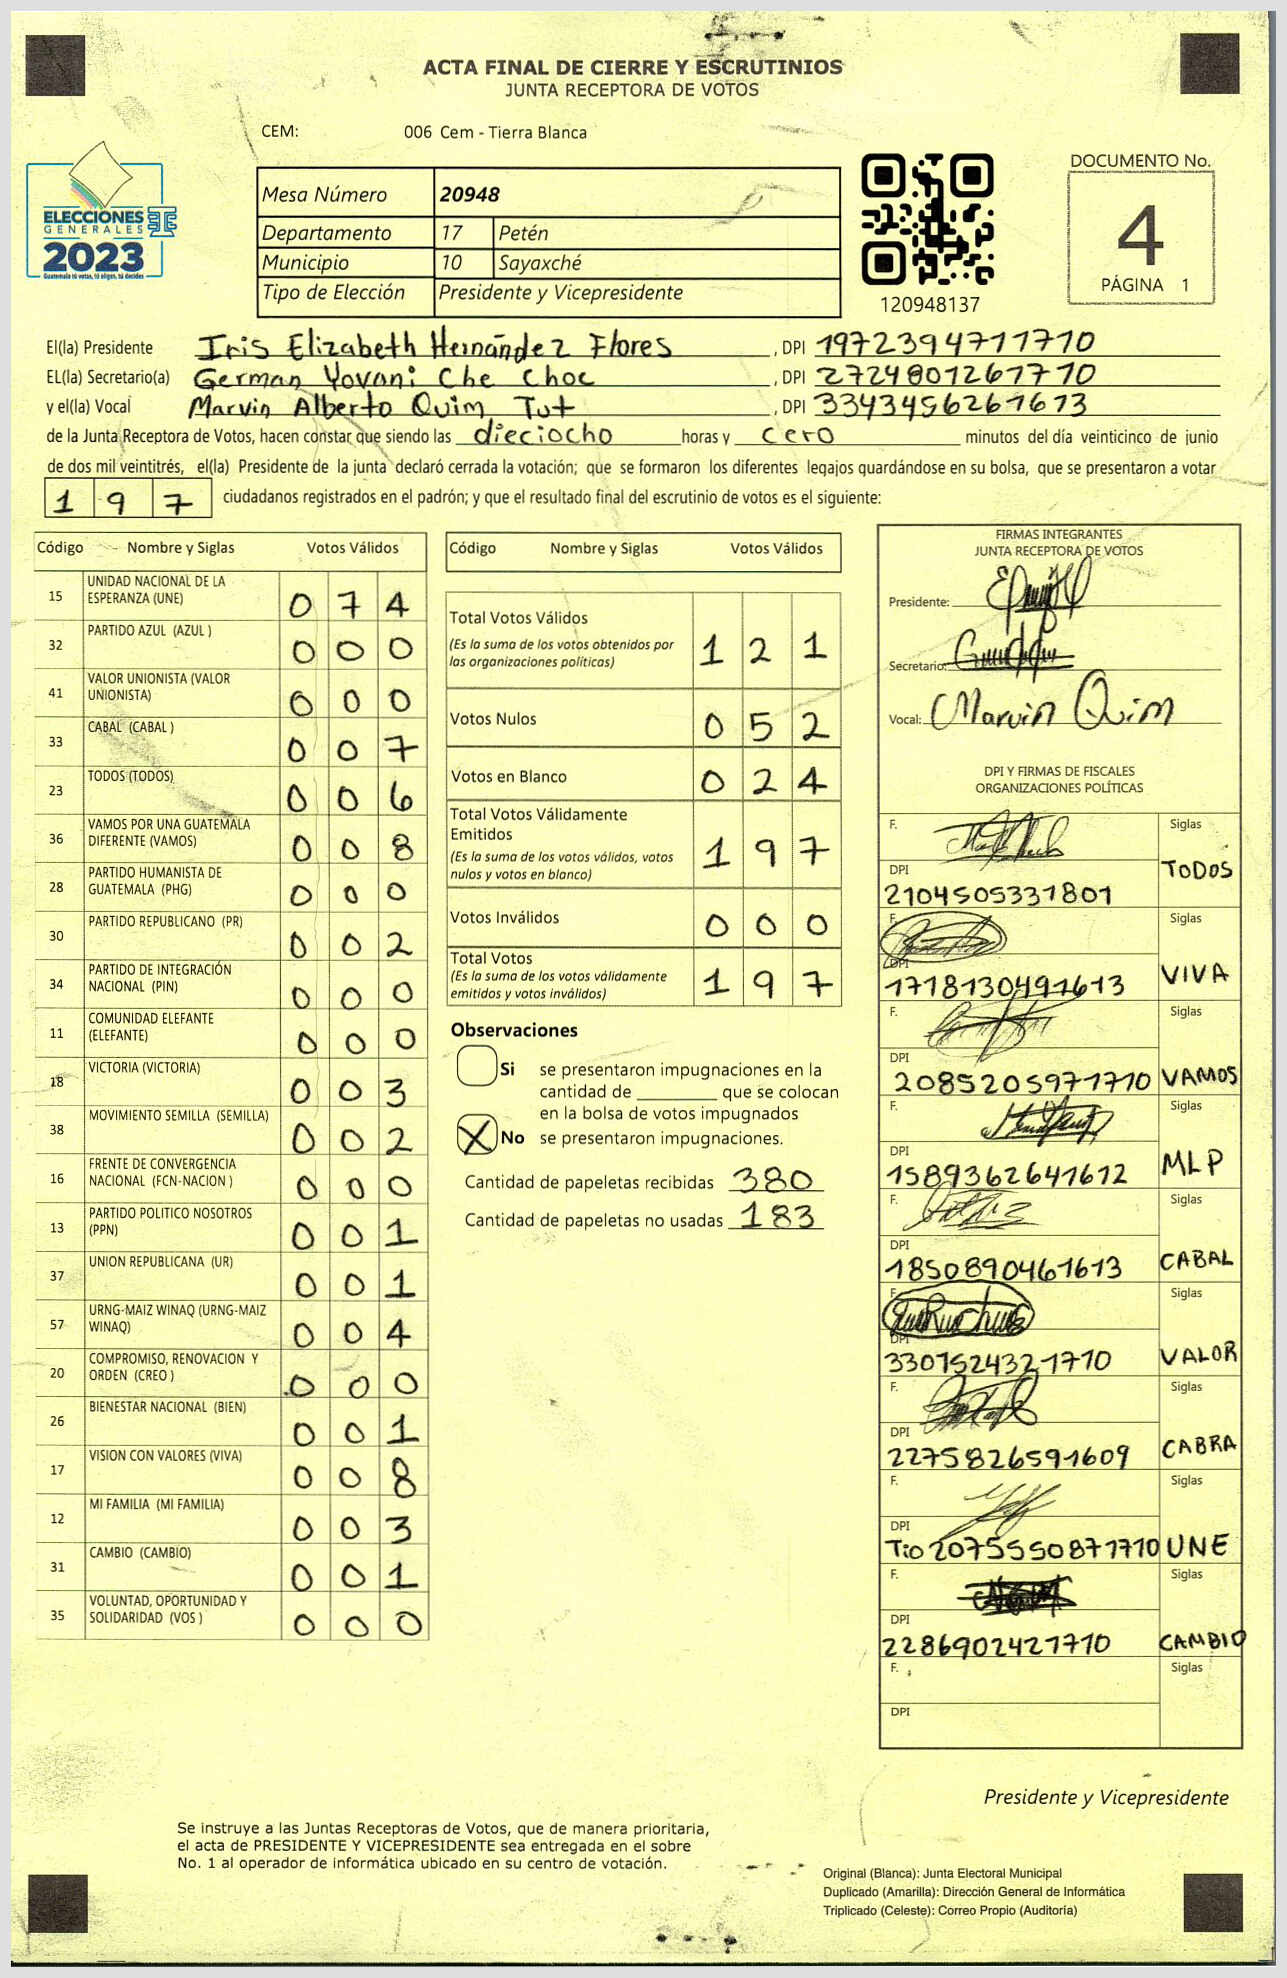 ACTA FINAL DE CIERRE Y ESCRUTINIOS
JUNTA RECEPTORA DE VOTOS
CEM: 006 Cem - Tierra Blanca
ELECCIONES
GENERALES
2023
Guatemala tú votas, tú eliges, tú decides
Mesa Número 20948
Departamento 17 Petén
Municipio 10 Sayaxché
Tipo de Elección Presidente y Vicepresidente
120948137
DOCUMENTO No.
4
PÁGINA 1
El(la) Presidente Iris Elizabeth Hernández Flores , DPI 1972394711710
EL(la) Secretario(a) German Yovani Che Choc , DPI 2724801261710
y el(la) Vocal Marvin Alberto Quim Tut , DPI 3343456261613
de la Junta Receptora de Votos, hacen constar que siendo las dieciocho horas y cero minutos del día veinticinco de junio
de dos mil veintitrés, el(la) Presidente de la junta declaró cerrada la votación; que se formaron los diferentes legajos guardándose en su bolsa, que se presentaron a votar
197 ciudadanos registrados en el padrón; y que el resultado final del escrutinio de votos es el siguiente:
Código Nombre y Siglas Votos Válidos
15 UNIDAD NACIONAL DE LA ESPERANZA (UNE) 074
32 PARTIDO AZUL (AZUL ) 000
41 VALOR UNIONISTA (VALOR UNIONISTA) 000
33 CABAL (CABAL ) 007
23 TODOS (TODOS) 006
36 VAMOS POR UNA GUATEMALA DIFERENTE (VAMOS) 008
28 PARTIDO HUMANISTA DE GUATEMALA (PHG) 000
30 PARTIDO REPUBLICANO (PR) 002
34 PARTIDO DE INTEGRACIÓN NACIONAL (PIN) 000
11 COMUNIDAD ELEFANTE (ELEFANTE) 000
18 VICTORIA (VICTORIA) 003
38 MOVIMIENTO SEMILLA (SEMILLA) 002
16 FRENTE DE CONVERGENCIA NACIONAL (FCN-NACION ) 000
13 PARTIDO POLITICO NOSOTROS (PPN) 001
37 UNION REPUBLICANA (UR) 001
57 URNG-MAIZ WINAQ (URNG-MAIZ WINAQ) 004
20 COMPROMISO, RENOVACION Y ORDEN (CREO ) 000
26 BIENESTAR NACIONAL (BIEN) 001
17 VISION CON VALORES (VIVA) 008
12 MI FAMILIA (MI FAMILIA) 003
31 CAMBIO (CAMBIO) 001
35 VOLUNTAD, OPORTUNIDAD Y SOLIDARIDAD (VOS ) 000
Código Nombre y Siglas Votos Válidos
Total Votos Válidos 121
(Es la suma de los votos obtenidos por
las organizaciones políticas)
Votos Nulos 052
Votos en Blanco 024
Total Votos Válidamente
Emitidos 197
(Es la suma de los votos válidos, votos
nulos y votos en blanco)
Votos Inválidos 000
Total Votos 197
(Es la suma de los votos válidamente
emitidos y votos inválidos)
Observaciones
Si se presentaron impugnaciones en la
cantidad de ________ que se colocan
en la bolsa de votos impugnados
X No se presentaron impugnaciones.
Cantidad de papeletas recibidas 380
Cantidad de papeletas no usadas 183
FIRMAS INTEGRANTES
JUNTA RECEPTORA DE VOTOS
Presidente:
Secretario:
Vocal: Marvin Quim
DPI Y FIRMAS DE FISCALES
ORGANIZACIONES POLÍTICAS
F. Siglas
DPI TODOS
2104505331801
F. Siglas
DPI VIVA
1718130491613
F. Siglas
DPI
2085205971710 VAMOS
F. Siglas
DPI MLP
1589362641612
F. Siglas
DPI CABAL
1850890461613
F. Siglas
DPI VALOR
3301524321710
F. Siglas
DPI CABRA
2275826591609
F. Siglas
DPI
Tio 2075550871710 UNE
F. Siglas
DPI
2286902421710 CAMBIO
F. Siglas
DPI
Presidente y Vicepresidente
Se instruye a las Juntas Receptoras de Votos, que de manera prioritaria,
el acta de PRESIDENTE Y VICEPRESIDENTE sea entregada en el sobre
No. 1 al operador de informática ubicado en su centro de votación.
Original (Blanca): Junta Electoral Municipal
Duplicado (Amarilla): Dirección General de Informática
Triplicado (Celeste): Correo Propio (Auditoría)